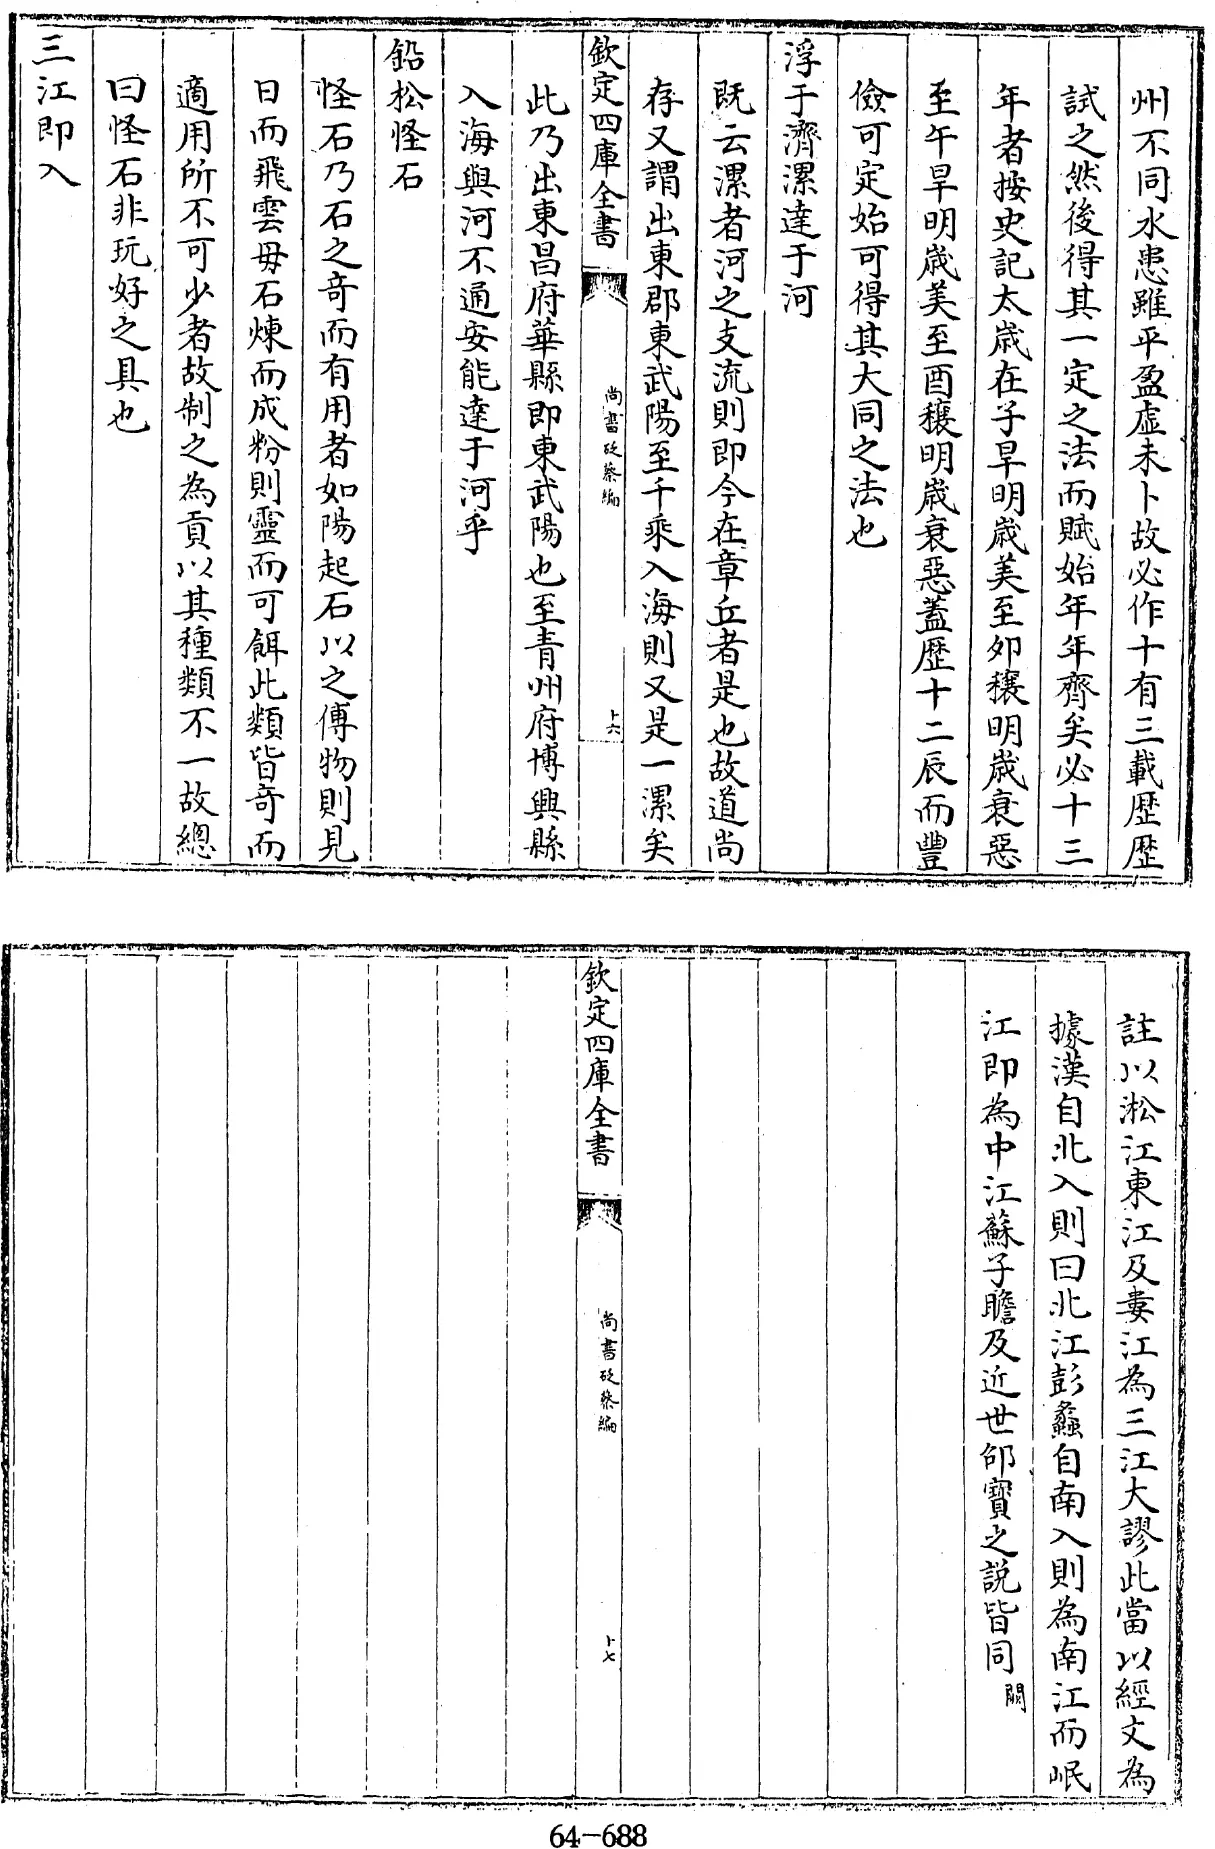 州不同水患雖平盈虚未卜故必作十有三載歴歴
試之然後得其一定之法而賦始年年齊矣必十三
年者按史記太歳在子旱明歳美至卯穰明歳衰惡
至午旱明歳美至酉穰明歳衰惡蓋歴十二辰而豐
儉可定始可得其大同之法也
浮于濟漯達于河
既云漯者河之支流則即今在章丘者是也故道尚
存又謂出東郡東武陽至千乘入海則又是一漯矣
欽定四庫全書
尚書砭蔡編
十六
此乃出東昌府華縣即東武陽也至青州府博興縣
入海與河不通安能達于河乎
鉛松怪石
怪石乃石之奇而有用者如陽起石以之傅物則見
日而飛雲毋石煉而成粉則靈而可餌此類皆奇而
適用所不可少者故制之為貢以其種類不一故總
曰怪石非玩好之具也
三江即入
註以淞江東江及婁江為三江大謬此當以經文為
據漢自北入則曰北江彭蠡自南入則為南江而岷
江即為中江蘇子瞻及近世邵寶之説皆同闕
欽定四庫全書
尚書砭蔡編
十七
64-688